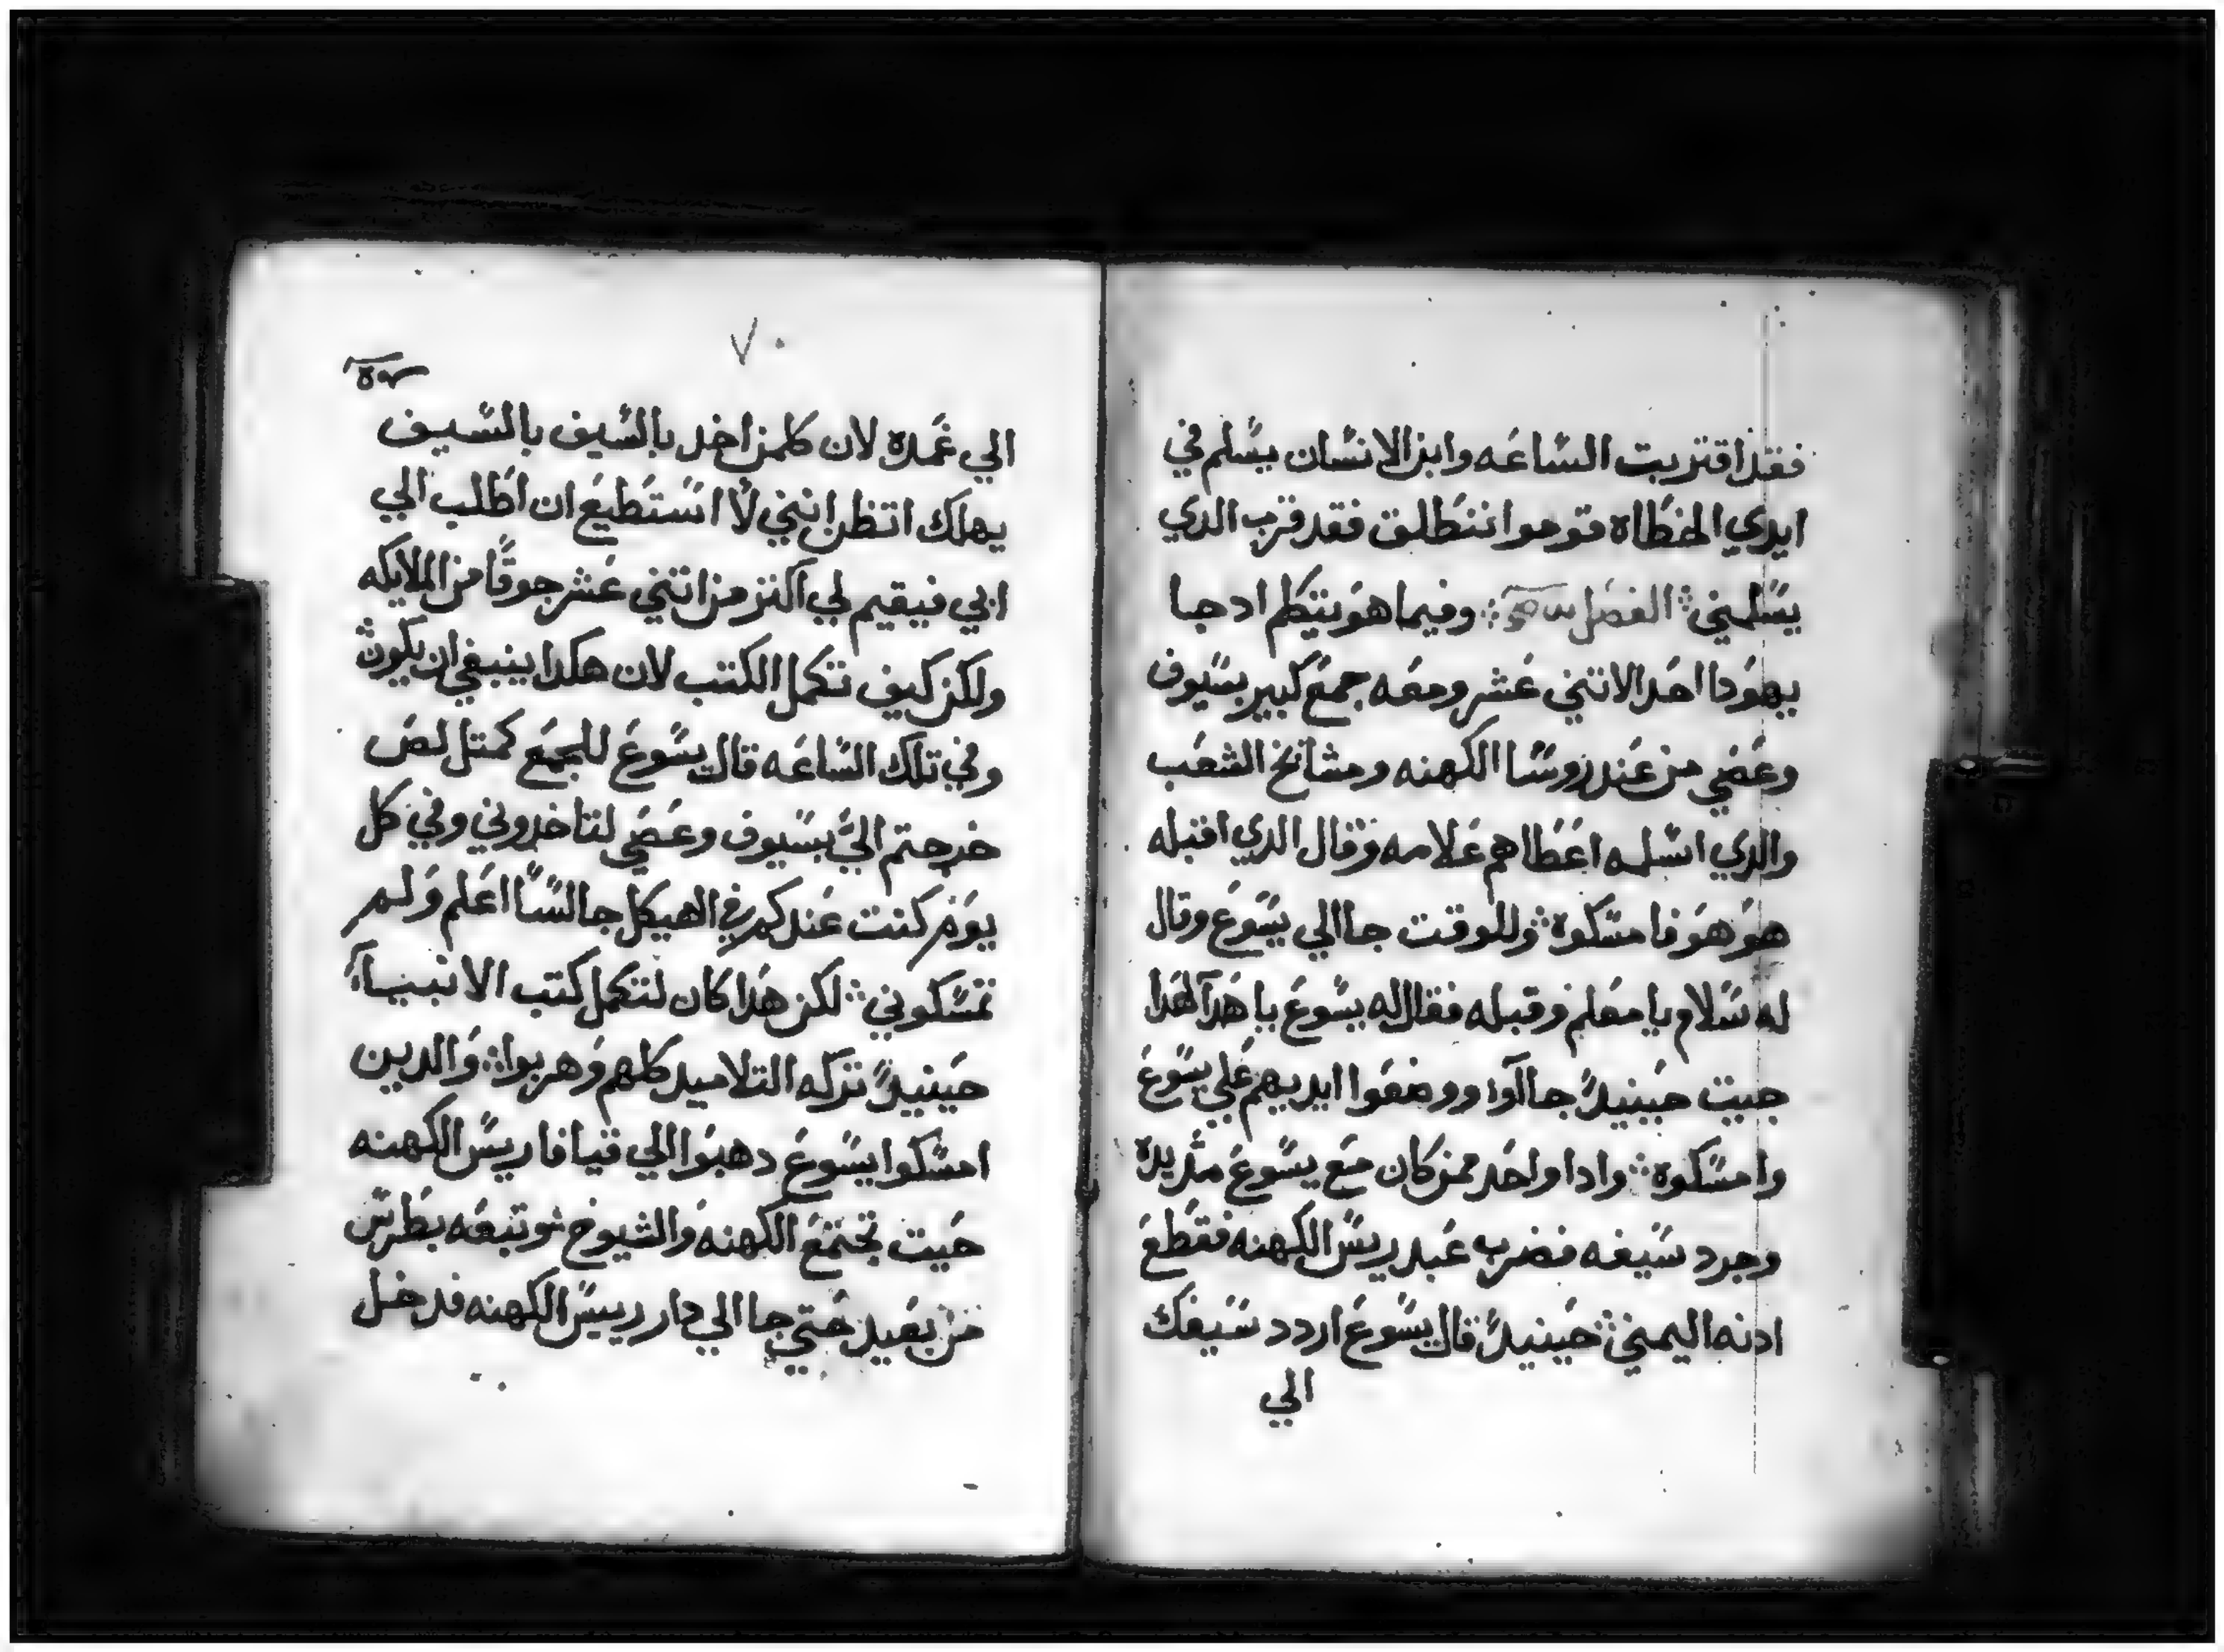 فقد اقتربت الساعه وابن الانسان يسلم في
ايدي الخطاه قوموا ننطلق فقد قرب الدي
يسلمني ۞ الفصل ۞ وفيما هو يتكلم اد جا
يهودا احد الاتني عشر ومعه جمع كبير بسيوف
وعصي من عند روسا الكهنه ومشايخ الشعب
والدي اسلمه اعطاهم علامه وقال الدي اقبله
هو هو فامسكوه ۞ وللوقت جا الي يسوع وقال
له سلام يا معلم وقبله فقال له يسوع يا هدا لهدا
جيت حينيدً جاآوا ووضعوا ايديهم علي يسوع
وامسكوه ۞ وادا واحد ممن كان مع يسوع مد يده
وجرد سيفه فضرب عبد ريس الكهنه فقطع
ادنه اليمني ۞ حينيدً قال يسوع اردد سيفك
الي
٧٠
الي غمده لان كلمن اخد بالسيف بالسيف
يهلك اتظن انني لا استطيع ان اطلب الي
ابي فيقيم لي اكتر من اتني عشر جوقًا من الملايكه
ولكن كيف تكمل الكتب لان هكدا ينبغي ان يكون ۞
وفي تلك الساعه قال يسوع للجمع كمتل لص
خرجتم اليَّ بسيوف وعصي لتاخدوني وفي كل
يوم كنت عندكم في الهيكل جالسًا اعلم ولم
تمسكوني ۞ لكن هدا كان لتكمل كتب الانبيآء
حينيدً تركه التلاميد كلهم وهربوا ۞ والدين
امسكوا يسوع دهبوا الي قيافا ريس الكهنه
حيت تجتمع الكهنه والشيوخ ۞ وتبعه بطرس
من بعيد حتي جا الي دار رييس الكهنه فدخل